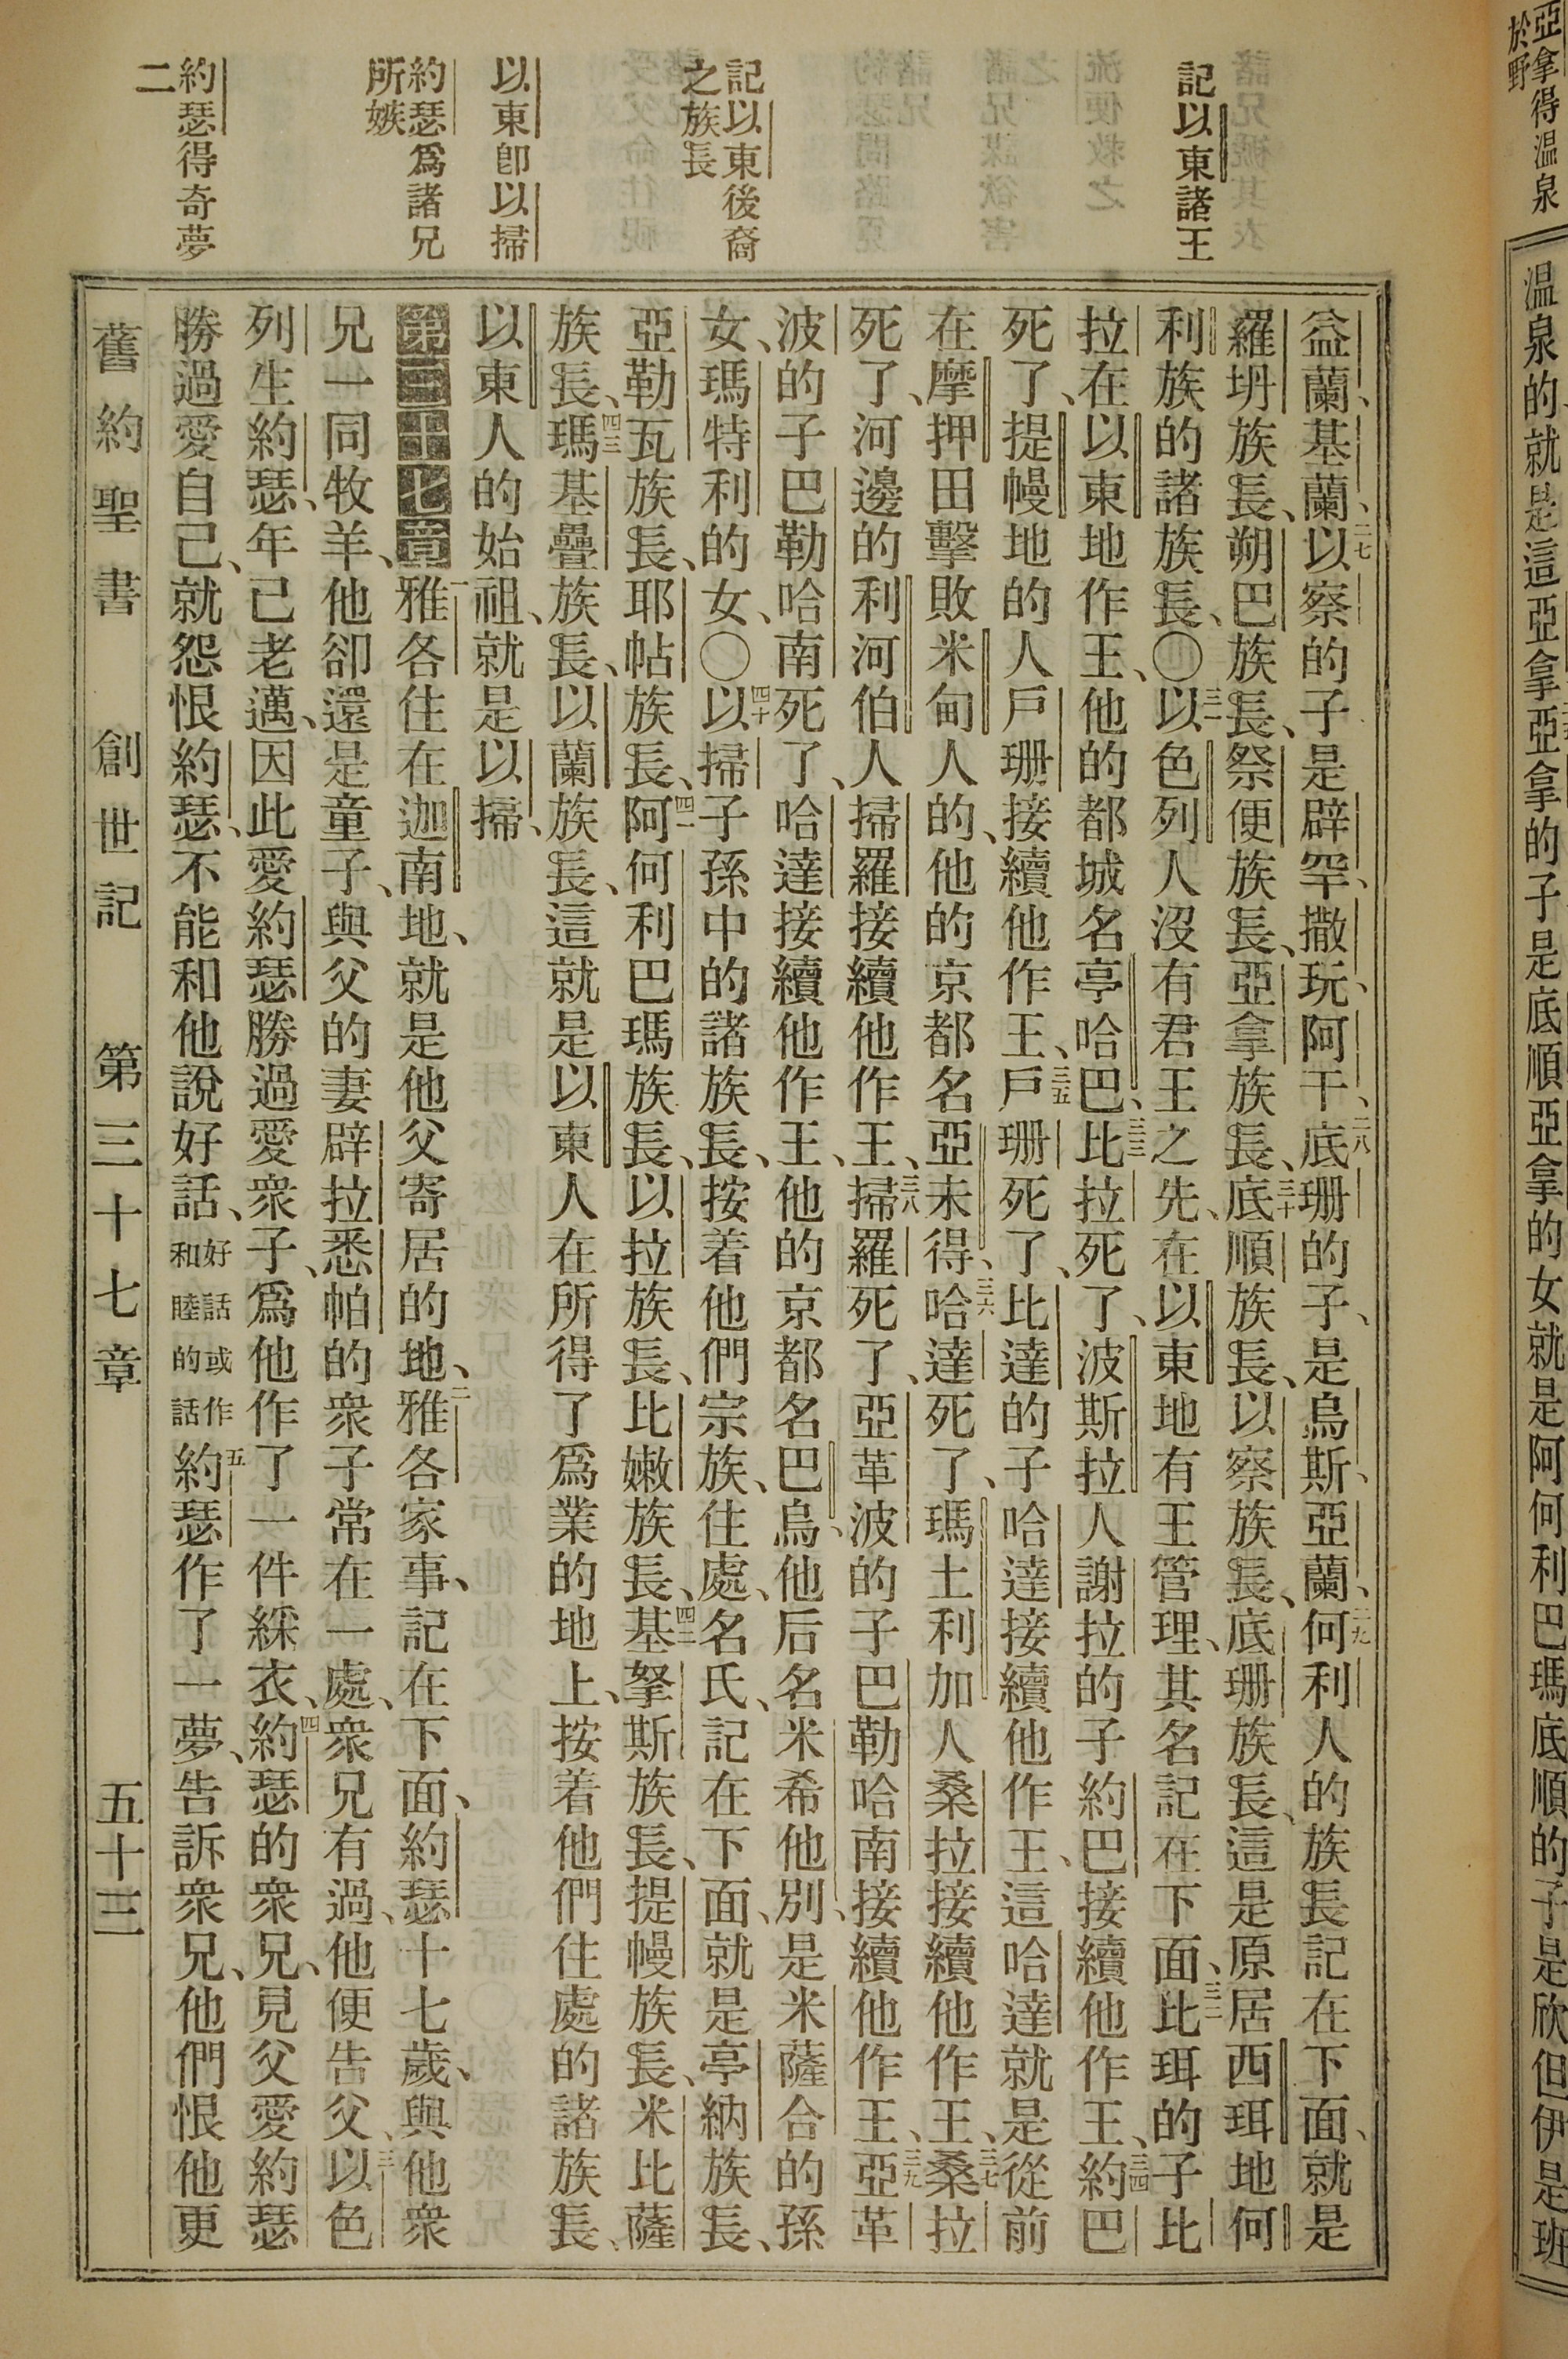 亞拿得温泉
於野
温泉的、就是這亞拿亞拿的子是底順亞拿的女就是阿何利巴瑪底順的子是欣但伊是班
記以東諸王
記以東後裔
之族長
以東卽以掃
約瑟爲諸兄
所嫉
約瑟得奇夢
二
益蘭、基蘭、二七以察的子是辟罕、撒玩、阿干、二八底珊的子、是烏斯、亞蘭、二九何利人的族長記在下面、就是
羅坍族長、朔巴族長、祭便族長、亞拿族長、三十底順族長、以察族長、底珊族長、這是原居西珥地何
利族的諸族長、〇三一以色列人沒有君王之先、在以東地有王管理、其名記在下面、三二比珥的子比
拉在以東地作王、他的都城名亭哈巴、三三比拉死了、波斯拉人謝拉的子約巴接續他作王、三四約巴
死了、提幔地的人戶珊接續他作王、三五戶珊死了、比達的子哈達接續他作王、這哈達就是從前
在摩押田擊敗米甸人的、他的京都名亞未得、三六哈達死了、瑪士利加人桑拉接續他作王、三七桑拉
死了、河邊的利河伯人掃羅接續他作王、三八掃羅死了、亞革波的子巴勒哈南接續他作王、三九亞革
波的子巴勒哈南死了、哈達接續他作王、他的京都名巴烏、他后名米希他別、是米薩合的孫
女、瑪特利的女、〇四十以掃子孫中的諸族長、按着他們宗族、住處、名氏、記在下面、就是亭納族長、
亞勒瓦族長、耶帖族長、四一阿何利巴瑪族長、以拉族長、比嫩族長、四二基拏斯族長、提幔族長、米比薩
族長、四三瑪基疊族長、以蘭族長、這就是以東人在所得了爲業的地上、按着他們住處的諸族長、
以東人的始祖、就是以掃、
第三十七章一雅各住在迦南地、就是他父寄居的地、二雅各家事、記在下面、約瑟十七歲、與他衆
兄一同牧羊、他卻還是童子、與父的妻辟拉悉帕的衆子常在一處、衆兄有過、他便告父、三以色
列生約瑟、年已老邁、因此愛約瑟勝過愛衆子、爲他作了一件綵衣、四約瑟的衆兄、見父愛約瑟
勝過愛自己、就怨恨約瑟、不能和他說好話、好話或作和睦的話五約瑟作了一夢、告訴衆兄、他們恨他更
舊約聖書 創世記 第三十七章 五十三